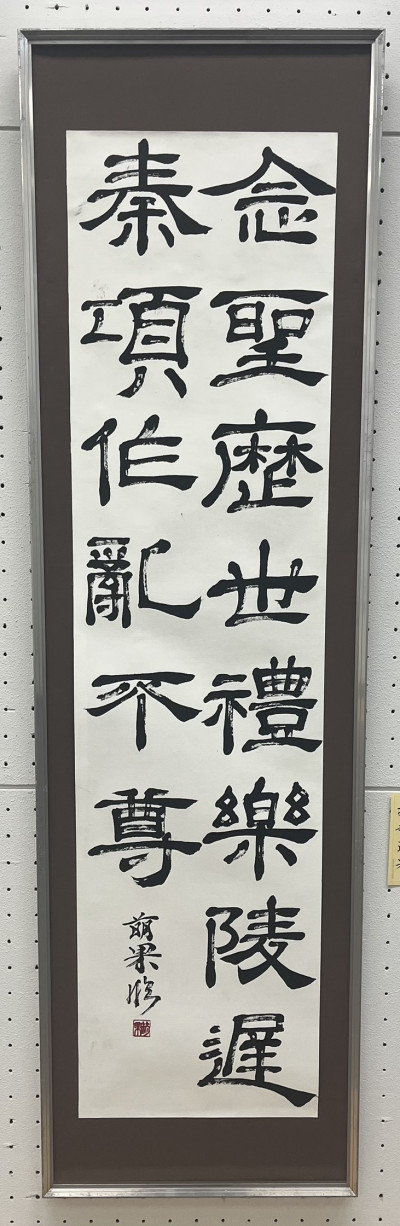 念聖歴世禮樂陵遲
秦項作亂不尊
萌果臨